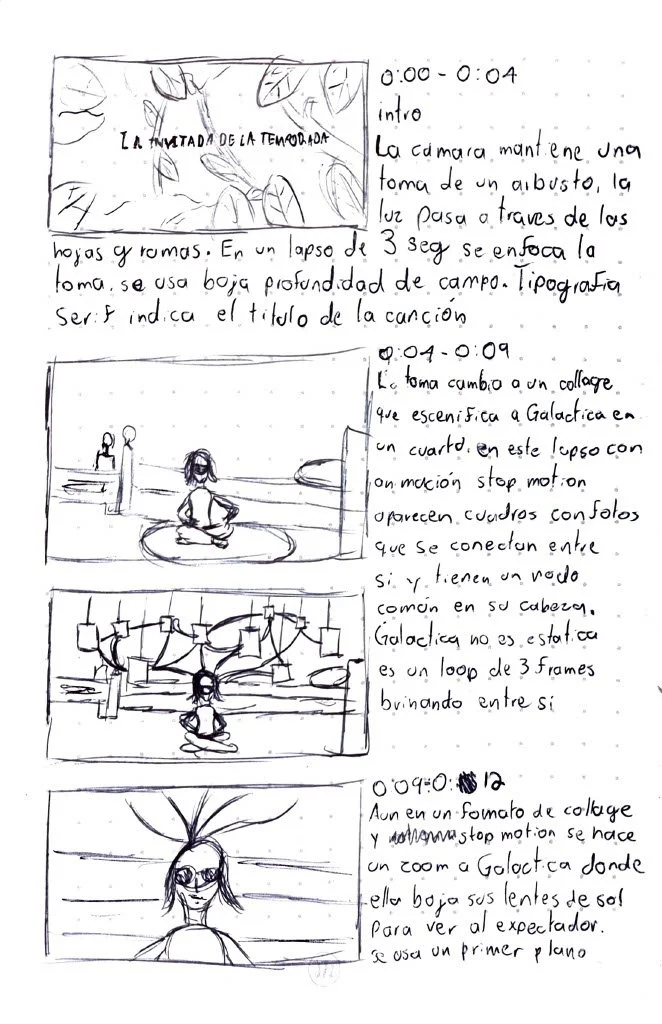 LA INVITADA DE LA TEMPORADA
0:00 - 0:04
intro
La cámara mantiene una
toma de un arbusto, la
luz pasa a traves de las
hojas y ramas. En un lapso de 3 seg se enfoca la
toma, se usa baja profundidad de campo. Tipografía
Serif indica el titulo de la canción
0:04 - 0:09
La toma cambia a un collage
que escenifica a Galactica en
un cuarto, en este lapso con
animación stop motion
aparecen cuadros con fotos
que se conectan entre
si y tienen un nodo
común en su cabeza.
Galactica no es estatica
es un loop de 3 frames
brinando entre si
0:09-0:12
Aun en un formato de collage
y stop motion se hace
un zoom a Galactica donde
ella baja sus lentes de sol
para ver al expectador.
Se usa un primer plano